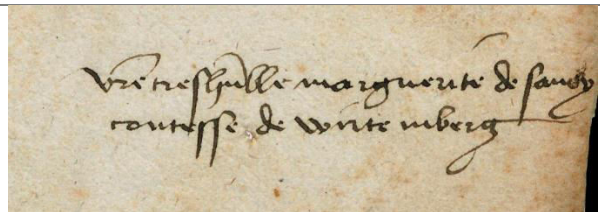 vre treshu̅ble marguerite de savoy
contesse de wirtemberg